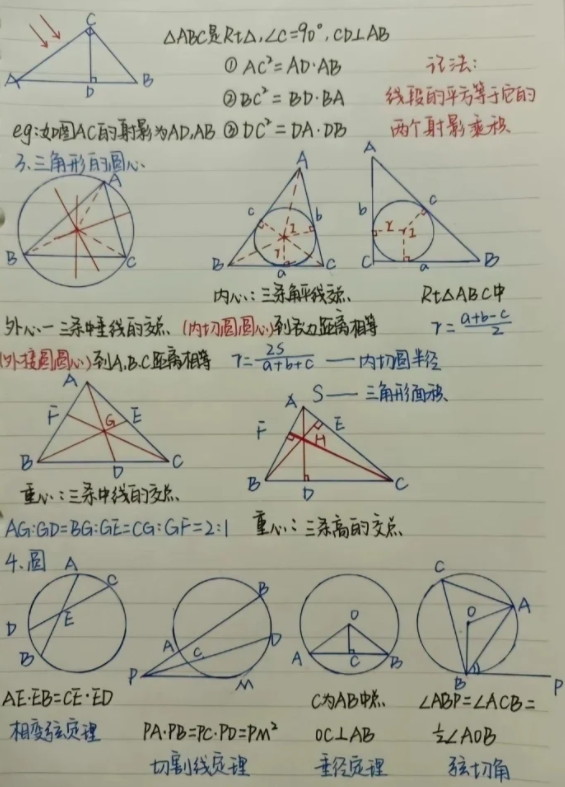 △ABC是Rt△,∠C=90°,CD⊥AB
① AC²=AD·AB
② BC²=BD·BA
eg:如图AC的射影为AD,AB ③ DC²=DA·DB
记法:
线段的平方等于它的
两个射影乘积
C
A
D
B
3.三角形的圆心
A
B
C
A
c
b
I
r
B
a
C
A
b
c
r
I
C
a
B
内心:三条角平线交点
Rt△ABC中
外心一三条中垂线的交点
(内切圆圆心)到长边距离相等
r=a+b-c/2
(外接圆圆心)到A,B,C距离相等
r=2S/a+b+c —— 内切圆半径
S —— 三角形面积
A
F
E
G
B
D
C
A
F
E
H
B
D
C
重心:三条中线的交点
AG:GD=BG:GE=CG:GF=2:1
重心:三条高的交点
4.圆
A
C
D
E
B
B
A
C
D
P
M
O
A
C
B
C
O
A
B
P
AE·EB=CE·ED
相交弦定理
PA·PB=PC·PD=PM²
切割线定理
C为AB中点
OC⊥AB
垂径定理
∠ABP=∠ACB=
½∠AOB
弦切角